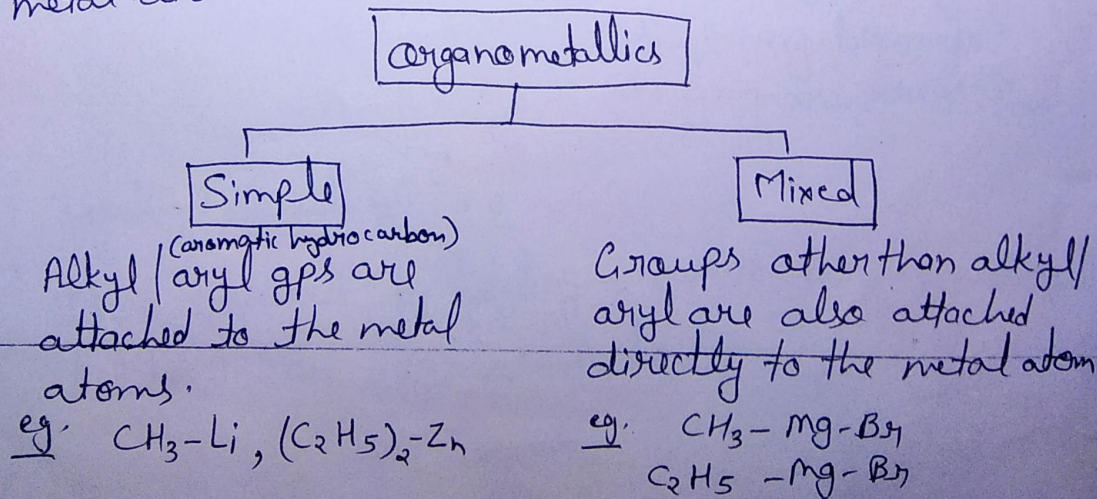 organometallics
Simple
Mixed
(aromatic hydrocarbon)
Alkyl/aryl gps are
attached to the metal
atoms.
eg. CH₃-Li, (C₂H₅)₂-Zn
Groups other than alkyl/
aryl are also attached
directly to the metal atom
eg. CH₃-Mg-Br
C₂H₅-Mg-Br